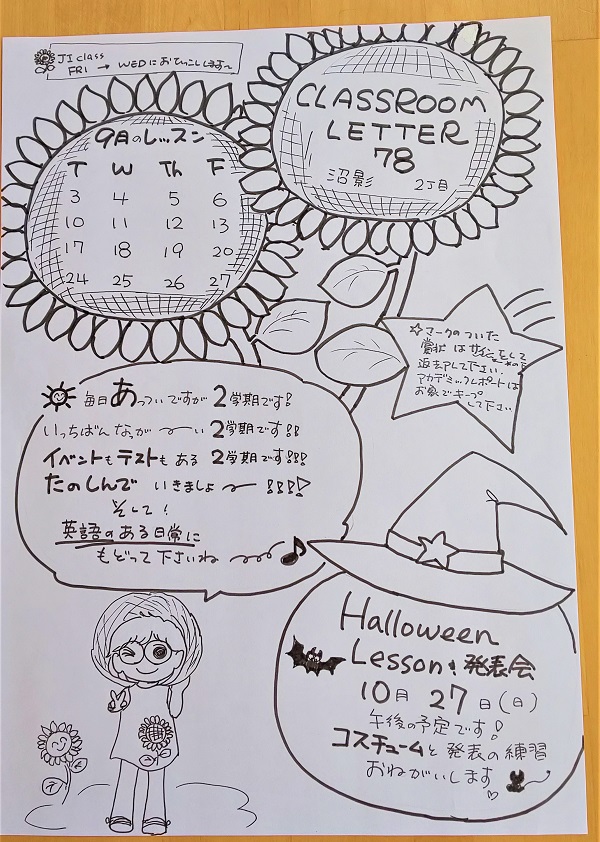 JI class
FRI → WEDにおひっこしします〜
CLASSROOM
LETTER
78
沼影 2丁目
9月のレッスン
T W Th F
3 4 5 6
10 11 12 13
17 18 19 20
24 25 26 27
☆マークのついた
賞状はサインをして
返却して下さい.
アカデミックレポートは
お家でキープ
して下さい
毎日あっついですが2学期です!
いっちばんなが〜い2学期です!!
イベントもテストもある2学期です!!!
たのしんでいきましょ〜!!!!
そして!
英語のある日常に
もどって下さいね〜♪
Halloween
Lesson & 発表会
10月27日(日)
午後の予定です!
コスチュームと発表の練習
おねがいします♡